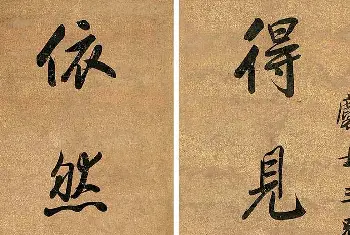 得見
依然